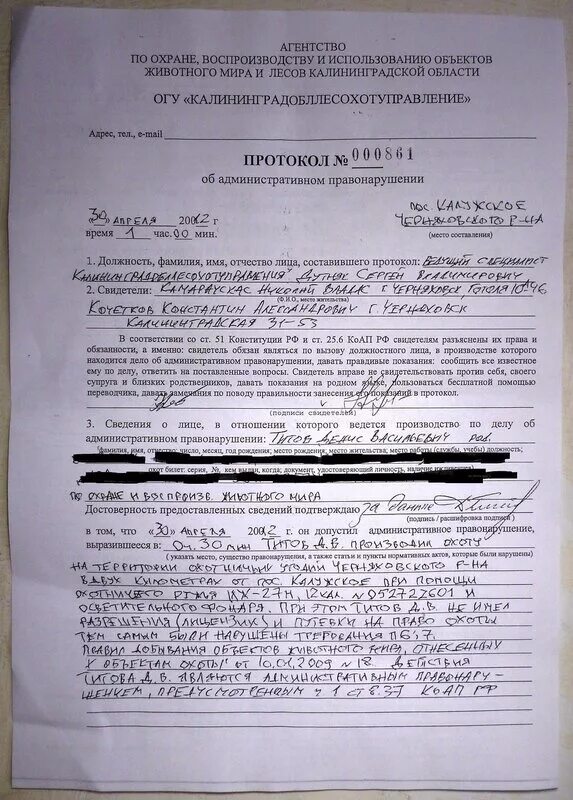 АГЕНТСТВО
ПО ОХРАНЕ, ВОСПРОИЗВОДСТВУ И ИСПОЛЬЗОВАНИЮ ОБЪЕКТОВ
ЖИВОТНОГО МИРА И ЛЕСОВ КАЛИНИНГРАДСКОЙ ОБЛАСТИ
ОГУ «КАЛИНИНГРАДОБЛЛЕСОХОТУПРАВЛЕНИЕ»
Адрес, тел., e-mail
ПРОТОКОЛ № 000861
об административном правонарушении
«30» АПРЕЛЯ 20012 г
ПОС. КАЛУЖСКОЕ
ЧЕРНЯХОВСКОГО Р-НА
время 1 час. 00 мин.
(место составления)
1. Должность, фамилия, имя, отчество лица, составившего протокол: ВЕДУЩИЙ СПЕЦИАЛИСТ
КАЛИНИНГРАДОБЛЛЕСОХОТУПРАВЛЕНИЯ" СЕРГЕЙ ВЛАДИМИРОВИЧ
2. Свидетели: КАМАРАУСКАС НИКОЛАЙ ВЛАДАС Г. ЧЕРНЯХОВСК ГОГОЛЯ 10-46
(Ф.И.О., место жительства)
КОЧЕТКОВ КОНСТАНТИН АЛЕКСАНДРОВИЧ Г. ЧЕРНЯХОВСК
КАЛИНИНГРАДСКАЯ 31-53
В соответствии со ст. 51 Конституции РФ и ст. 25.6 КоАП РФ свидетелям разъяснены их права и
обязанности, а именно: свидетель обязан являться по вызову должностного лица, в производстве которого
находится дело об административном правонарушении, давать правдивые показания: сообщить все известное
ему по делу, ответить на поставленные вопросы. Свидетель вправе не свидетельствовать против себя, своего
супруга и близких родственников, давать показания на родном языке, пользоваться бесплатной помощью
переводчика, давать замечания по поводу правильности занесения его показаний в протокол.
(подписи свидетелей)
3. Сведения о лице, в отношении которого ведется производство по делу об
административном правонарушении: ТИТОВ ДЕНИС ВАСИЛЬЕВИЧ род.
фамилия, имя, отчество; число, месяц, год рождения; место рождения, место жительства; место работы (службы, учебы) должность;
охот билет: серия, №, кем выдан, когда; документ, удостоверяющий личность,
ПО ОХРАНЕ И ВОСПРОИЗВ. ЖИВОТНОГО МИРА
Достоверность предоставленных сведений подтверждаю
(подпись / расшифровка подписи)
в том, что «30» АПРЕЛЯ 20012 г. он допустил административное правонарушение,
выразившееся в: 0ч. 30 мин ТИТОВ Д.В. ПРОИЗВОДИЛ ОХОТУ
(указать место, существо правонарушения, а также статьи и пункты нормативных актов, которые были нарушены)
НА ТЕРРИТОРИИ ОХОТНИЧЬИХ УГОДИЙ ЧЕРНЯХОВСКОГО Р-НА
В ДВУХ КИЛОМЕТРАХ ОТ ПОС. КАЛУЖСКОЕ ПРИ ПОМОЩИ
ОХОТНИЧЬЕГО РУЖЬЯ ИЖ-27М, 12 кал. №052722601 И
ОСВЕТИТЕЛЬНОГО ФОНАРЯ. ПРИ ЭТОМ ТИТОВ Д.В. НЕ ИМЕЛ
РАЗРЕШЕНИЯ (ЛИЦЕНЗИИ) И ПУТЕВКИ НА ПРАВО ОХОТЫ
ТЕМ САМЫМ БЫЛИ НАРУШЕНЫ ТРЕБОВАНИЯ П 6; 7.
ПРАВИЛ ДОБЫВАНИЯ ОБЪЕКТОВ ЖИВОТНОГО МИРА, ОТНЕСЕННЫХ
К ОБЪЕКТАМ ОХОТЫ" ОТ 10.01.2009 №18. ДЕЙСТВИЯ
ТИТОВА Д.В. ЯВЛЯЮТСЯ АДМИНИСТРАТИВНЫМ ПРАВОНАРУ-
ШЕНИЕМ, ПРЕДУСМОТРЕННЫМ Ч 1 СТ 8.37 КоАП РФ